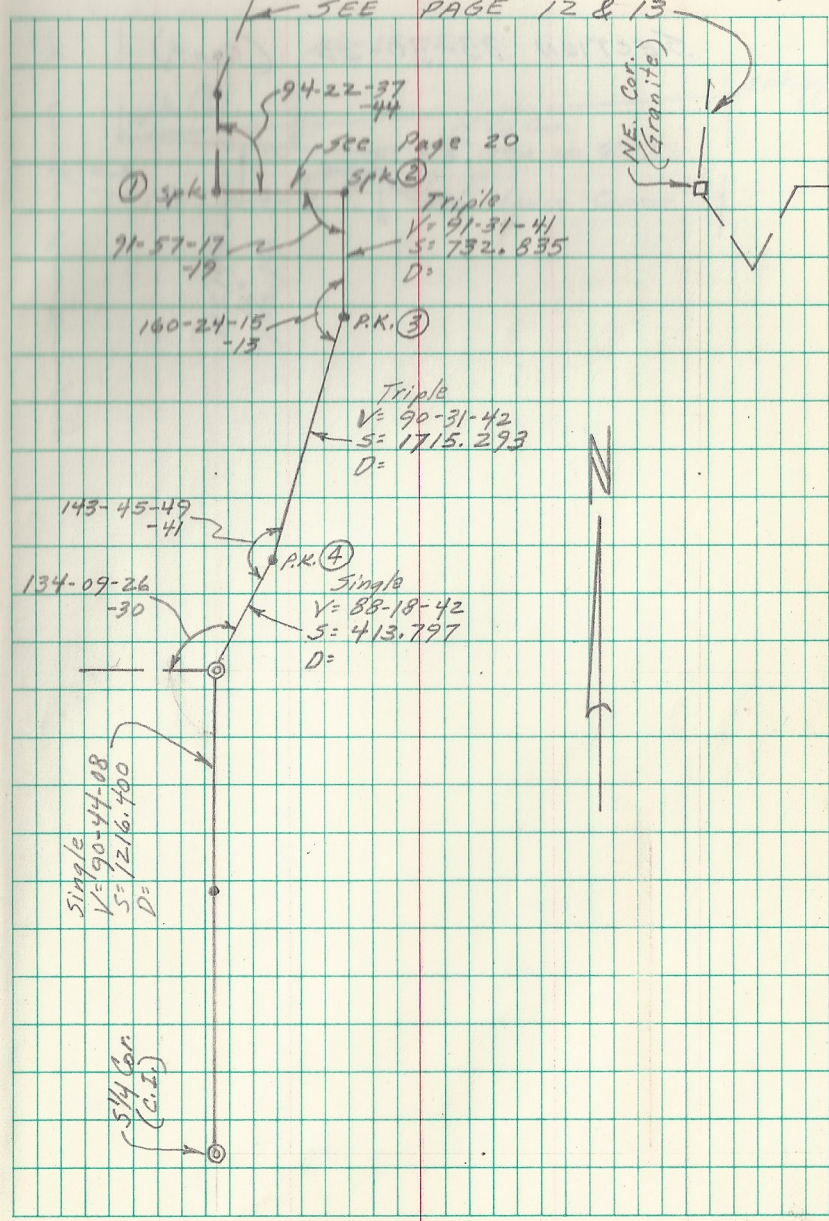 SEE PAGE 12 & 13
94-22-37
-44
NE. Cor.
(Granite)
See Page 20
① spk
spk ②
Triple
V= 91-31-41
S= 732.835
D=
91-57-17
-19
160-24-15
-13
P.K. ③
Triple
V= 90-31-42
S= 1715.293
D=
N
143-45-49
-41
P.K. ④
134-09-26
-30
Single
V= 88-18-42
S= 413.797
D=
Single
V= 90-44-08
S= 1216.400
D=
S1/4 Cor.
(C.I.)